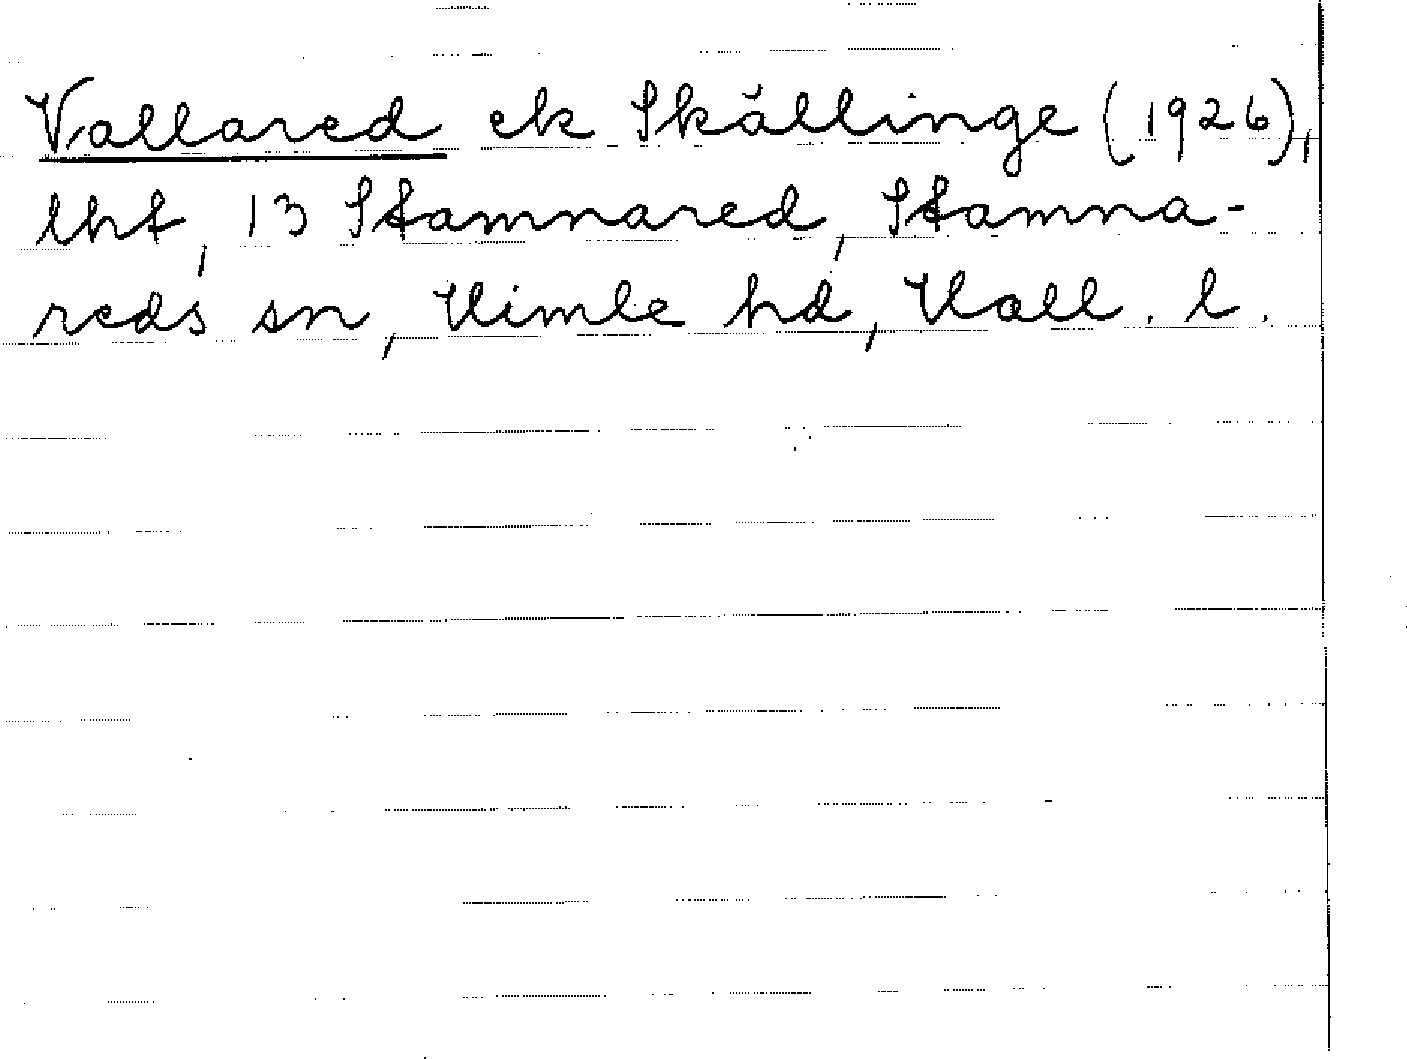 Vallared ek Skällinge (1926),
lht, 13 Stamnared, Stamna-
reds sn, Himle hd, Hall. l.